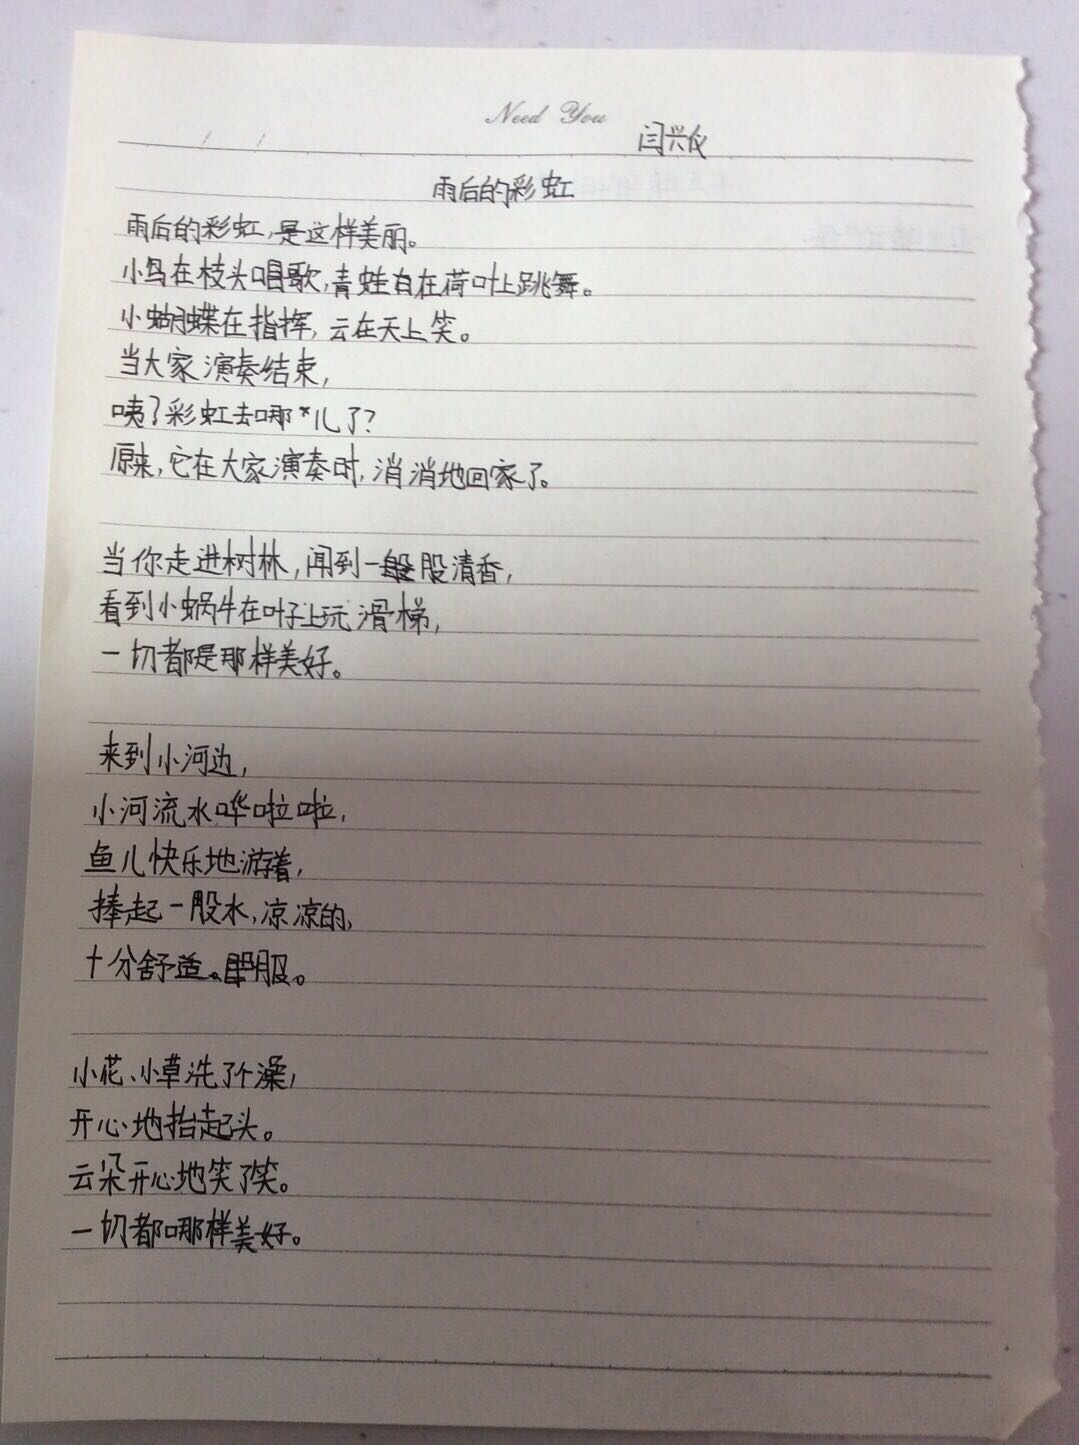 Need You
闫兴仪
雨后的彩虹
雨后的彩虹,是这样美丽。
小鸟在枝头唱歌,青蛙自在荷叶上跳舞。
小蝴蝶在指挥,云在天上笑。
当大家演奏结束,
咦了彩虹去哪儿了?
原来,它在大家演奏时,消消地回家了。
当你走进树林,闻到一股清香,
看到小蜗牛在叶子上玩滑梯,
一切都是那样美好。
来到小河边,
小河流水哗啦啦,
鱼儿快乐地游着,
捧起一股水,凉凉的,
十分舒适。
小花、小草洗了个澡,
开心地抬起头。
云朵开心地笑了笑。
一切都哪样美好。